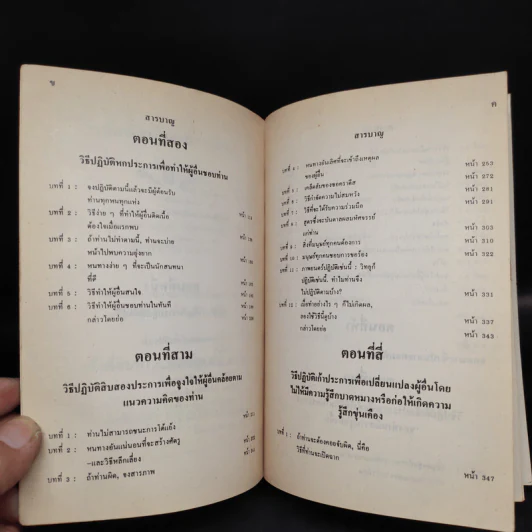 ข
สารบาญ
ตอนที่สอง
วิธีปฏิบัติหกประการเพื่อทำให้ผู้อื่นชอบท่าน
บทที่ 1 : จงปฏิบัติตามนี้แล้วจะมีผู้ต้อนรับ
ท่านทุกหนทุกแห่ง
บทที่ 2 : วิธีง่าย ๆ ที่ทำให้ผู้อื่นติดเนื้อ หน้า
ต้องใจเมื่อแรกพบ
บทที่ 3 : ถ้าท่านไม่ทำตามนี้, ท่านจะบ่าย หน้า
หน้าไปหาความยุ่งยาก
บทที่ 4 : หนทางง่าย ๆ ที่จะเป็นนักสนทนา หน้า
ที่ดี
บทที่ 5 : วิธีทำให้ผู้อื่นสนใจ หน้า
บทที่ 6 : วิธีทำให้ผู้อื่นชอบท่านในทันที หน้า
กล่าวโดยย่อ หน้า
ตอนที่สาม
วิธีปฏิบัติสิบสองประการเพื่อจูงใจให้ผู้อื่นคล้อยตาม
แนวความคิดของท่าน
บทที่ 1 : ท่านไม่สามารถชนะการโต้แย้ง หน้า
บทที่ 2 : หนทางอันแน่นอนที่จะสร้างศัตรู หน้า
-และวิธีหลีกเลี่ยง
บทที่ 3 : ถ้าท่านผิด, จงสารภาพ
ค
สารบาญ
บทที่ 4 : หนทางอันเลิศที่จะเข้าถึงเหตุผล หน้า 253
ของผู้อื่น หน้า 272
บทที่ 5 : เคล็ดลับของซอคราตีส หน้า 281
บทที่ 6 : วิธีกำจัดความไม่สมหวัง หน้า 291
บทที่ 7 : วิธีที่จะได้รับความร่วมมือ
บทที่ 8 : สูตรซึ่งจะบันดาลผลมหัศจรรย์
แก่ท่าน หน้า 303
บทที่ 9 : สิ่งที่มนุษย์ทุกคนต้องการ หน้า 310
บทที่ 10 : มนุษย์ทุกคนชอบการขอร้อง หน้า 322
บทที่ 11 : ภาพยนตร์ปฏิบัติเช่นนี้ : วิทยุก็
ปฏิบัติเช่นนี้. ทำไมท่านจึง
ไม่ปฏิบัติตามบ้าง? หน้า 331
บทที่ 12 : เมื่อทำอย่างไร ๆ ก็ไม่เกิดผล,
ลองใช้วิธีนี้ดูบ้าง หน้า 337
กล่าวโดยย่อ หน้า 343
ตอนที่สี่
วิธีปฏิบัติเก้าประการเพื่อเปลี่ยนแปลงผู้อื่นโดย
ไม่ให้มีความรู้สึกบาดหมางหรือก่อให้เกิดความ
รู้สึกขุ่นเคือง
บทที่ 1 : ถ้าท่านจะต้องคอยจับผิด, นี่คือ
วิธีที่ท่านจะเปิดฉาก หน้า 347